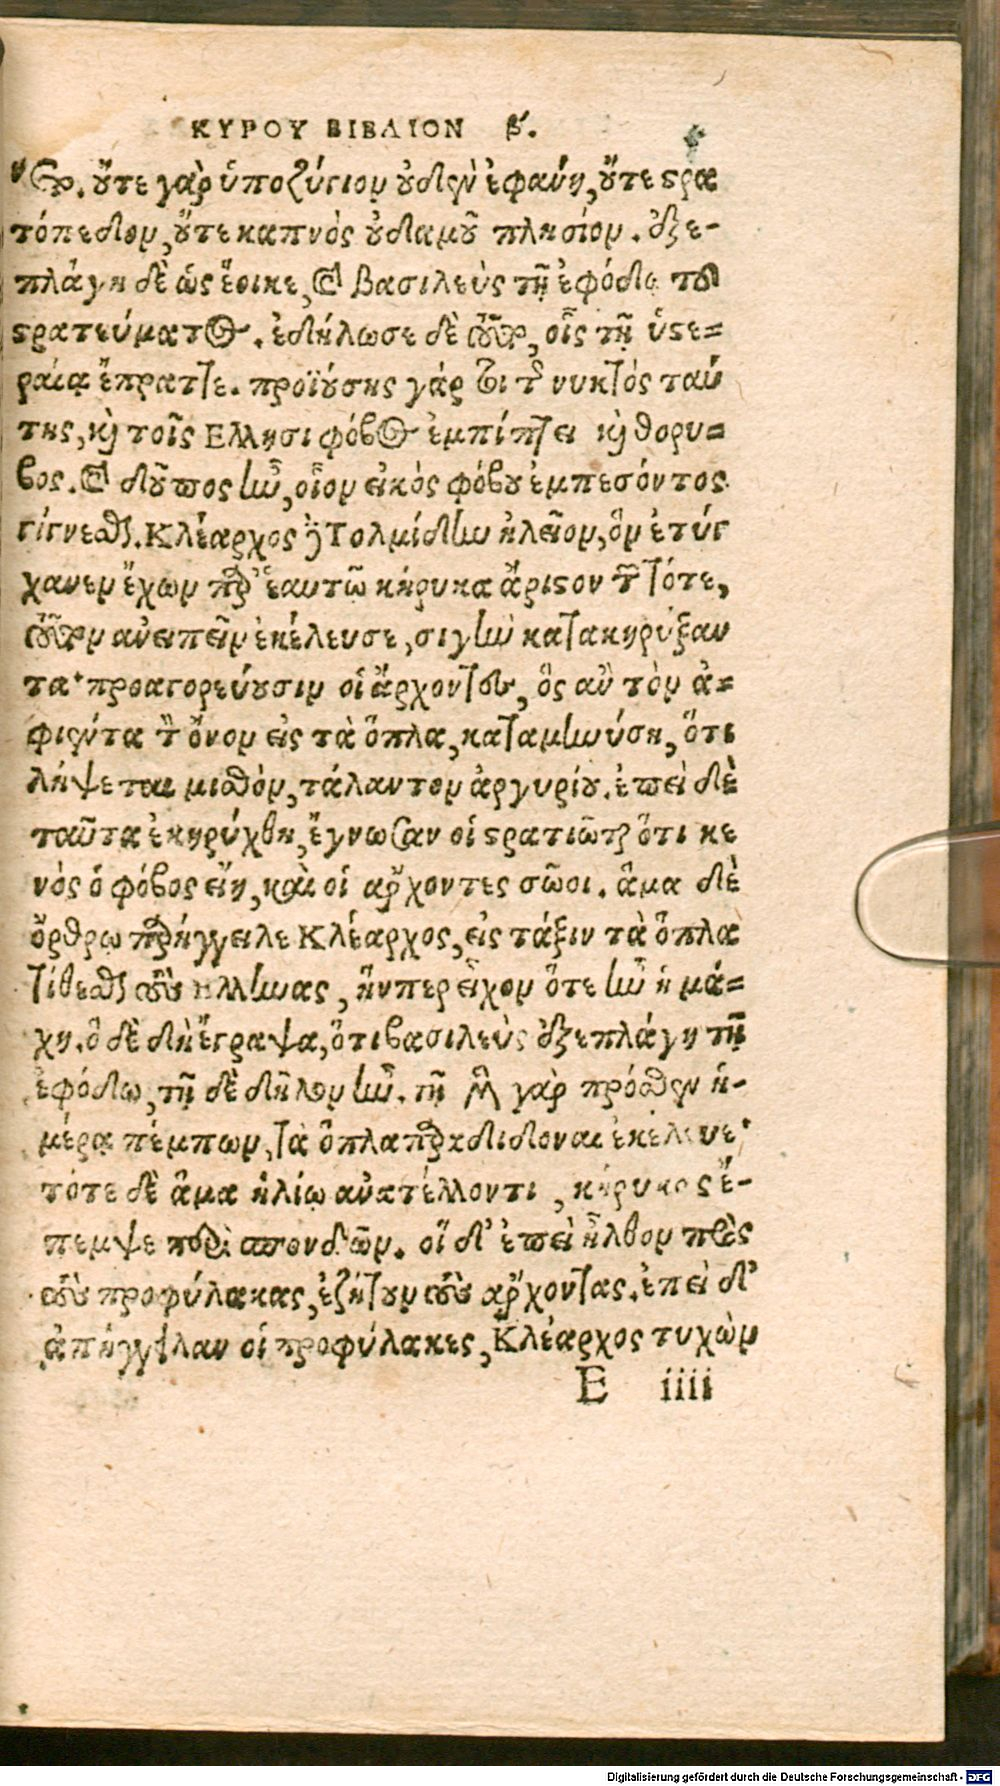 ΚΥΡΟΥ ΒΙΒΛΙΟΝ β΄.
οὔτε γὰρ ὑποζύγιον οὐδὲν ἐφάνη, οὔτε στρα
τόπεδον, οὔτε καπνὸς οὐδαμοῦ πλησίον. ἐξε-
πλάγη δὲ ὡς ἔοικε, καὶ βασιλεὺς τῇ ἐφόδῳ τοῦ
στρατεύματος. ἐδήλωσε δὲ τοῦτο, οἷς τῇ ὑστε-
ραίᾳ ἔπραττε. προϊούσης γάρ τοι τῆς νυκτὸς ταύ
της, καὶ τοῖς Ελλησι φόβος ἐμπίπτει καὶ θορυ-
βος. καὶ δοῦπος ἦν, οἷον εἰκός φόβου ἐμπεσόντος
γίγνεσθαι. Κλέαρχος δὲ Τολμίδην ἠλεῖον, ὃν ἐτύγ
χανεν ἔχων παρ' ἑαυτῷ κήρυκα ἄριστον τῶν τότε,
τοῦτον ἀνειπεῖν ἐκέλευσε, σιγὴν κατακηρύξαν
τα· προαγορεύουσιν οἱ ἄρχοντες, ὃς ἂν τὸν ἀ-
φιέντα τὸν ὄνον εἰς τὰ ὅπλα, καταμηνύσῃ, ὅτι
λήψεται μισθὸν, τάλαντον ἀργυρίου. ἐπεὶ δὲ
ταῦτα ἐκηρύχθη, ἔγνωσαν οἱ στρατιῶται ὅτι κε
νὸς ὁ φόβος εἴη, καὶ οἱ ἄρχοντες σῶοι. ἅμα δὲ
ὄρθρῳ παρήγγειλε Κλέαρχος, εἰς τάξιν τὰ ὅπλα
τίθεσθαι τοὺς ἕλληνας, ἥνπερ εἶχον ὅτε ἦν ἡ μά-
χη. ὃ δὲ δὴ ἔγραψα, ὅτι βασιλεὺς ἐξεπλάγη τῇ
ἐφόδῳ, τῇδε δῆλον ἦν. τῇ μὲν γὰρ πρόσθεν ἡ-
μέρᾳ πέμπων, τὰ ὅπλα παραδιδόναι ἐκέλευε·
τότε δὲ ἅμα ἡλίῳ ἀνατέλλοντι, κήρυκας ἔ-
πεμψε περὶ σπονδῶν. οἵ δ' ἐπεὶ ἦλθον πρὸς
τοὺς προφύλακας, ἐζήτουν τοὺς ἄρχοντας. ἐπεὶ δ'
ἀπήγγειλαν οἱ προφύλακες, Κλέαρχος τυχὼν
E iiii
Digitalisierung gefördert durch die Deutsche Forschungsgemeinschaft - DFG